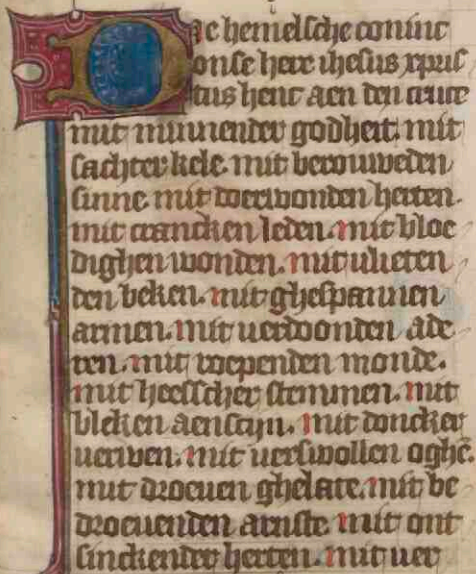 Dae hemelsche coninc
onse here ihesus xpus
dus henc aen den cruce
mit minnender godheit. mit
sachter kele. mit berouweden
sinne. mit doerwonden herten.
mit crancken leden. mit bloe
dighen wonden. mit ulieten
den beken. mit ghespannen
armen. mit uerdoonden ade
ren. mit roependen monde.
mit heesscher stemmen. mit
bleken aenscijn. mit doncker
uerwen. mit uerswollen oghe.
mit droeuen ghelate. mit be
droeuenden arnste. mit ont
sinckender herten. mit uer